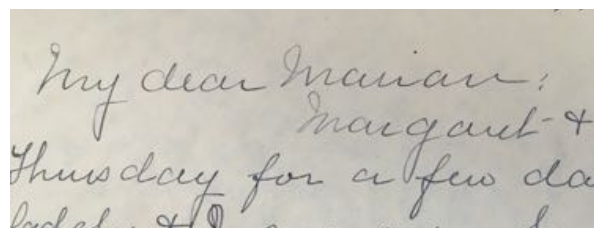 My dear Marian:
Margaret &
Thursday for a few da
&